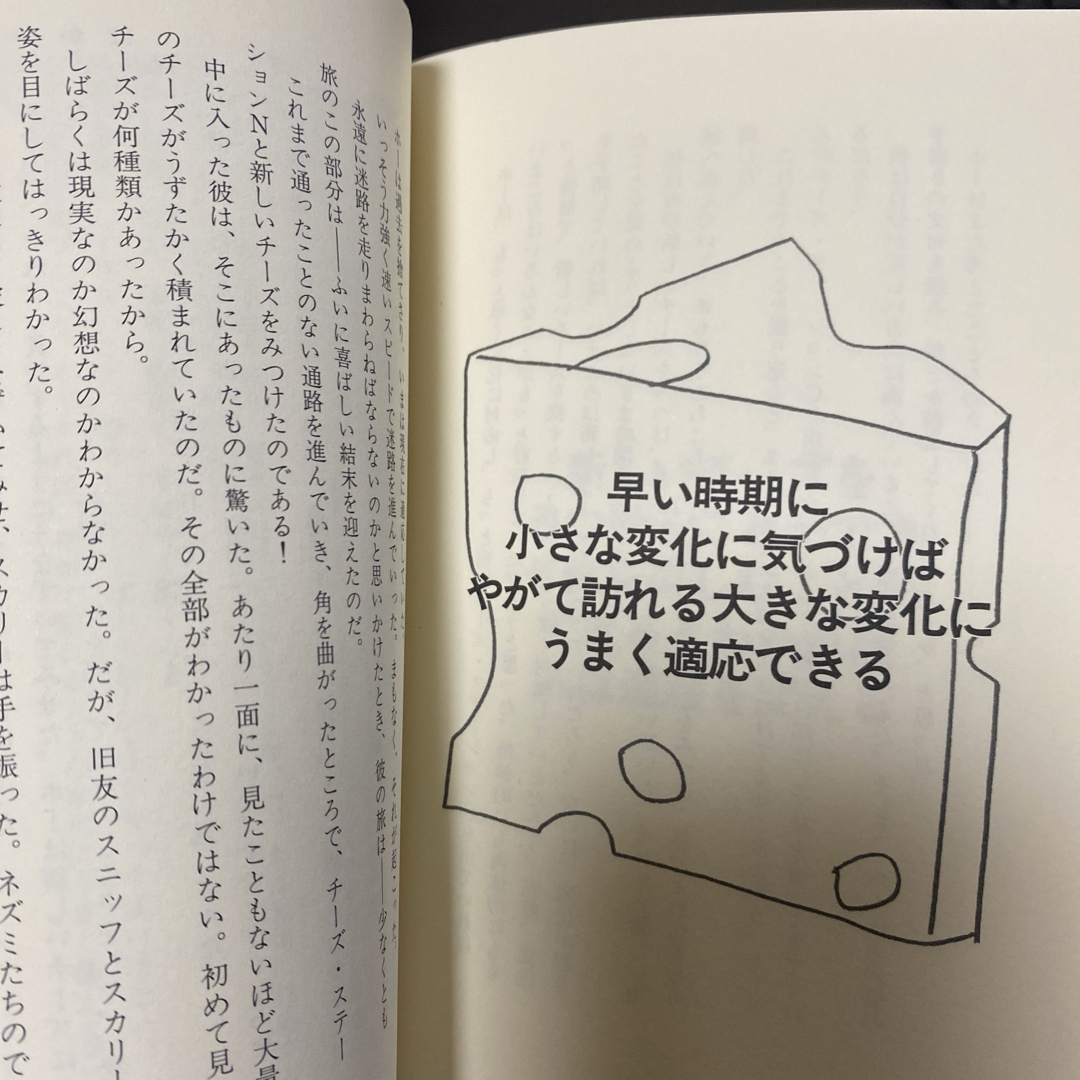 早い時期に
小さな変化に気づけば
やがて訪れる大きな変化に
うまく適応できる
ホーは過去を捨てさり、いまは現在に適応していた。
いっそう力強く速いスピードで迷路を進んでいった。まもなく、それが起こった。
永遠に迷路を走りまわらねばならないのかと思いかけたとき、彼の旅は――少なくとも
旅のこの部分は――ふいに喜ばしい結末を迎えたのだ。
これまで通ったことのない通路を進んでいき、角を曲がったところで、チーズ・ステー
ションNと新しいチーズをみつけたのである!
中に入った彼は、そこにあったものに驚いた。あたり一面に、見たこともないほど大量
のチーズがうずたかく積まれていたのだ。その全部がわかったわけではない。初めて見
チーズが何種類かあったから。
しばらくは現実なのか幻想なのかわからなかった。だが、旧友のスニッフとスカリー
姿を目にしてはっきりわかった。
てみせ、スカリーは手を振った。ネズミたちので